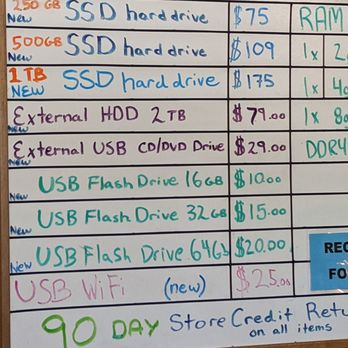 250 GB New SSD hard drive $75 RAM
500GB New SSD hard drive $109 1x 2
1 TB NEW SSD hard drive $175 1x 4
New External HDD 2 TB $79.00 1x 8
New External USB CD/DVD Drive $29.00 DDR4
New USB Flash Drive 16 GB $10.00
New USB Flash Drive 32 GB $15.00
New USB Flash Drive 64 Gb $20.00 REC
USB WiFi (new) $25.00 FO
90 DAY Store Credit Retu
on all items